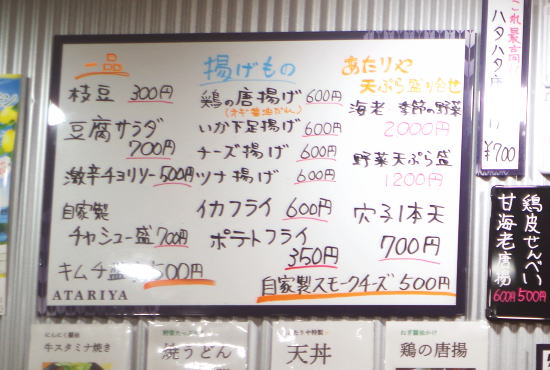 一品
枝豆 300円
豆腐サラダ
700円
激辛チョリソー 500円
自家製
チャシュー盛 700円
キムチ盛 500円
ATARIYA
揚げもの
鶏の唐揚げ 600円
いか下足揚げ 600円
チーズ揚げ 600円
ツナ揚げ 600円
イカフライ 600円
ポテトフライ
350円
あたりや
天ぷら盛り合せ
海老 季節の野菜
2000円
野菜天ぷら盛
1200円
穴子1本天
700円
自家製スモークチーズ 500円
これ最高
ハタハタ
¥700
鶏皮せんべい
500円
甘海老唐揚
600円
にんにく醤油
牛スタミナ焼き
焼うどん
あたりや特製
天丼
ねぎ醤油かけ
鶏の唐揚